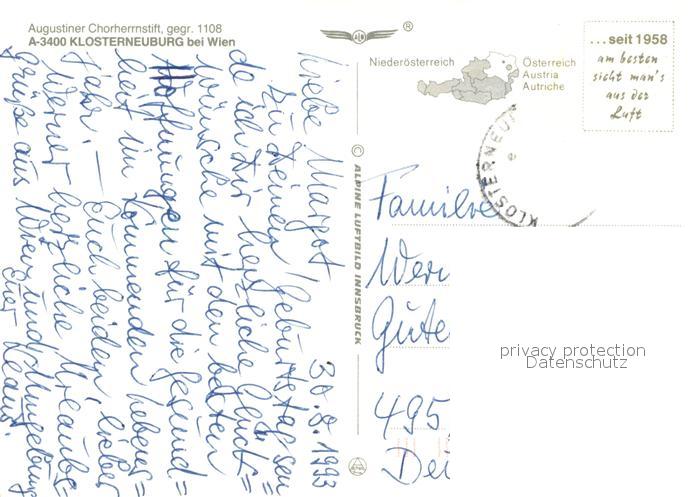 Augustiner Chorherrnstift, gegr. 1108
A-3400 KLOSTERNEUBURG bei Wien
®
Niederösterreich
Österreich
Austria
Autriche
...seit 1958
am besten
sieht man's
aus der
Luft
KLOSTERNEU
© ALPINE LUFTBILD INNSBRUCK
30.8.1993
Liebe Margot!
Zu Deinem Geburtstag sen=
de ich Dir herzliche Glück=
wünsche mit den besten
Hoffnungen für die Gesund=
heit im kommenden Lebens=
jahr. — Euch beiden, lieber
Werner herzliche Urlaubs=
grüße aus Wien und Umgebung
Klaus.
Familie
Wer
Gute
495
De
privacy protection
Datenschutz